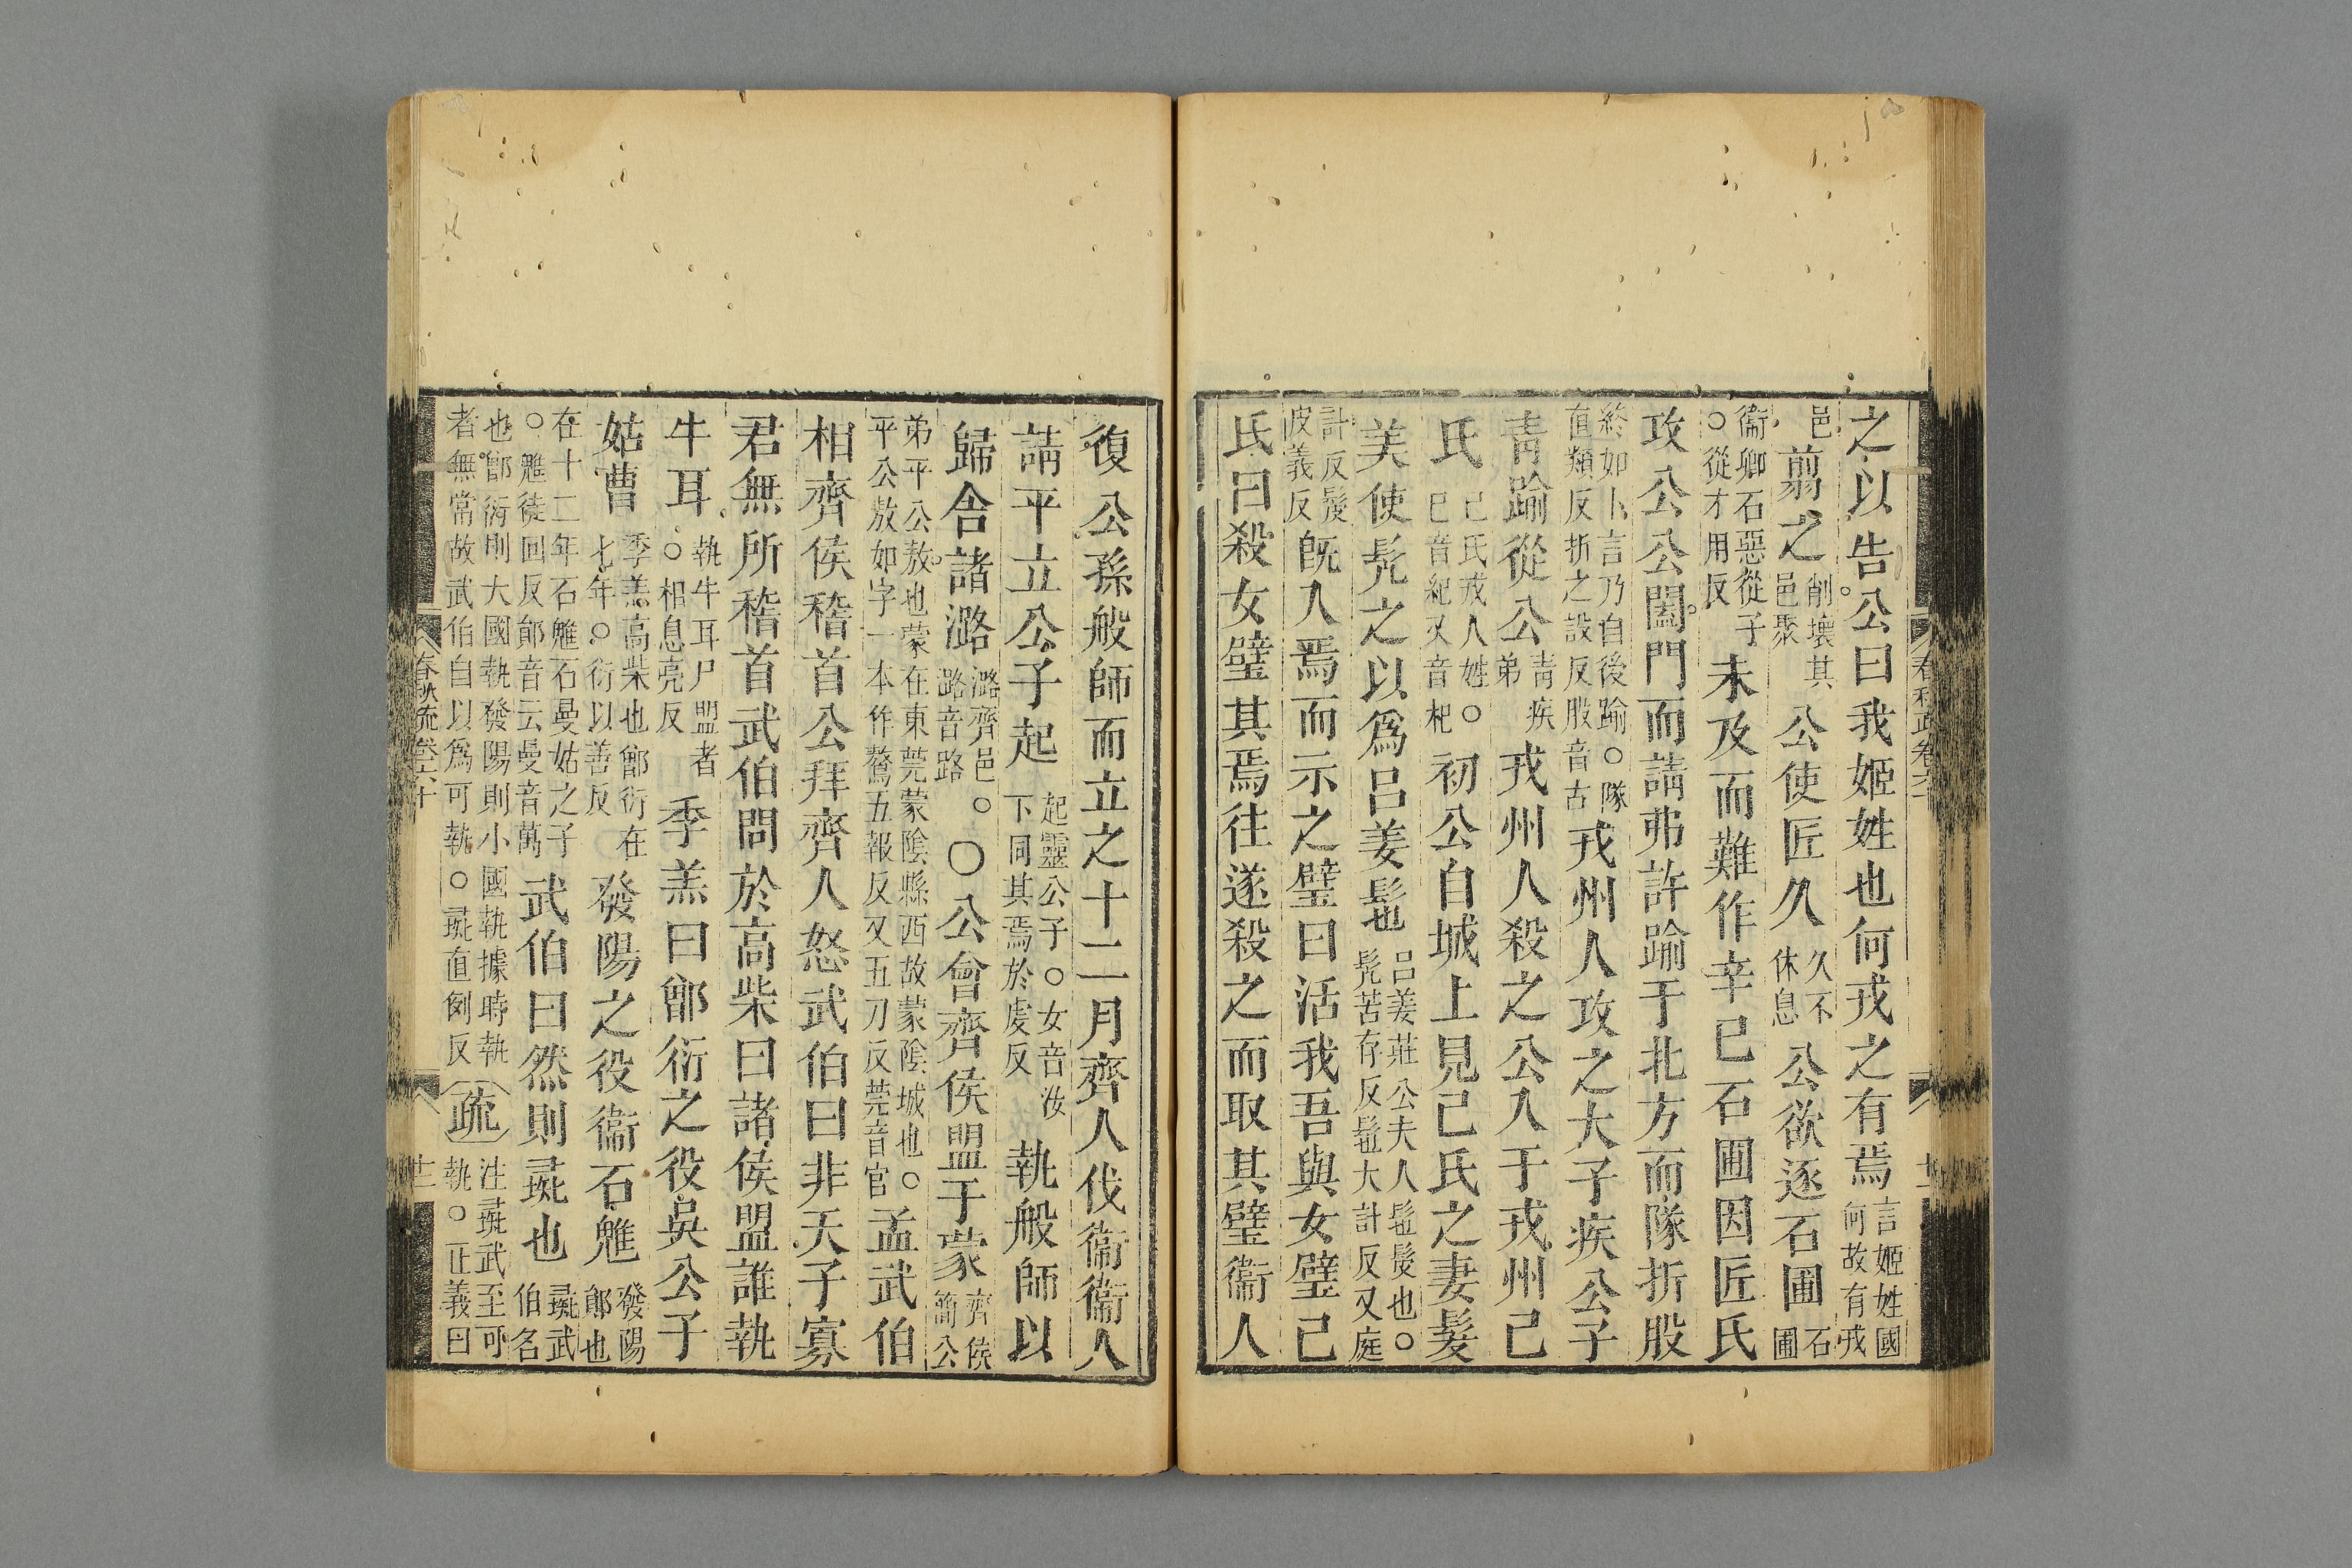 之以告公曰我姬姓也何戎之有焉言姬姓國何故有戎
邑翦之削壞其邑聚公使匠久久不休息公欲逐石圃石圃
衞卿石惡從子○從才用反未及而難作辛巳石圃因匠氏
攻公公闔門而請弗許踰于北方而隊折股
終如卜言乃自後踰○隊直類反折之設反股音古戎州人攻之大子疾公子
靑踰從公靑疾弟戎州人殺之公入于戎州己
氏己氏戎人姓○己音紀又音杞初公自城上見己氏之妻髮
美使髡之以爲呂姜髢呂姜莊公夫人髢髲也○髡苦存反髢大計反又庭
計反髲皮義反旣入焉而示之璧曰活我吾與女璧己
氏曰殺女璧其焉往遂殺之而取其璧衞人
復公孫般師而立之十二月齊人伐衞衞人
請平立公子起起靈公子○女音汝下同其焉於虔反執般師以
歸舍諸潞潞齊邑○潞音路○公會齊侯盟于蒙齊侯簡公
弟平公敖也蒙在東莞蒙陰縣西故蒙陰城也○平公敖如字一本作驁五報反又五刀反莞音官孟武伯
相齊侯稽首公拜齊人怒武伯曰非天子寡
君無所稽首武伯問於高柴曰諸侯盟誰執
牛耳執牛耳尸盟者○相息亮反季羔曰鄫衍之役吳公子
姑曹季羔高柴也鄫衍在七年○衍以善反發陽之役衞石魋發陽鄖也
在十二年石魋石曼姑之子○魋徒回反鄖音云曼音萬武伯曰然則彘也彘武伯名
也鄫衍則大國執發陽則小國執據時執者無常故武伯自以爲可執○彘直例反疏注彘武至可執○正義曰
春秋疏卷六十
十二